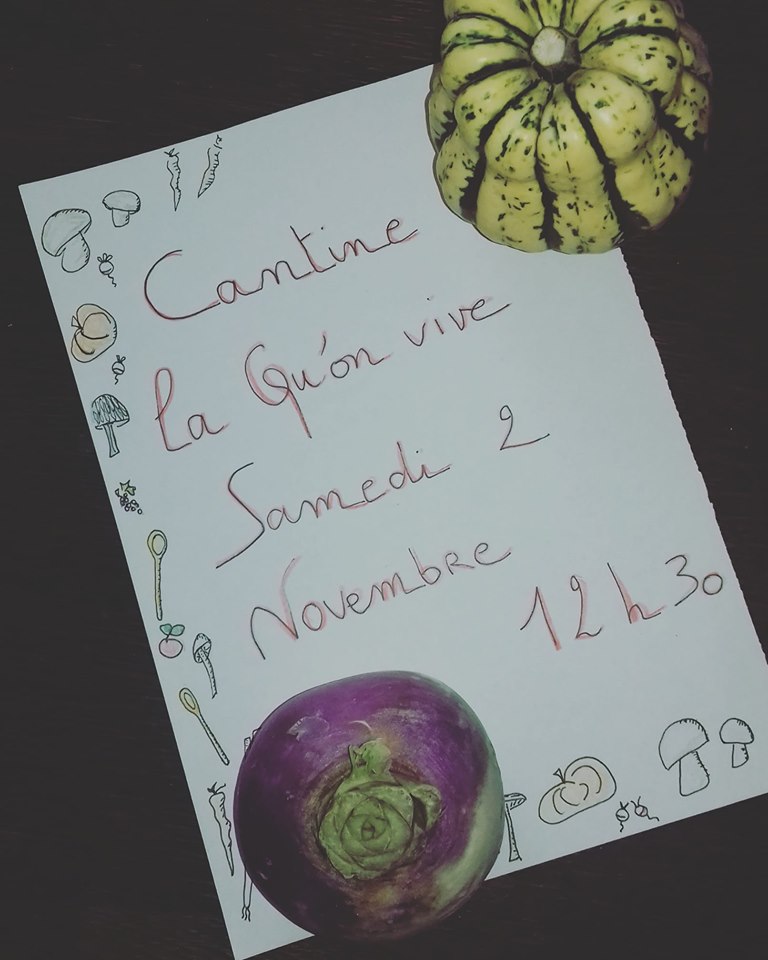 Cantine
la Qu'on vive
Samedi 2
Novembre
12h30